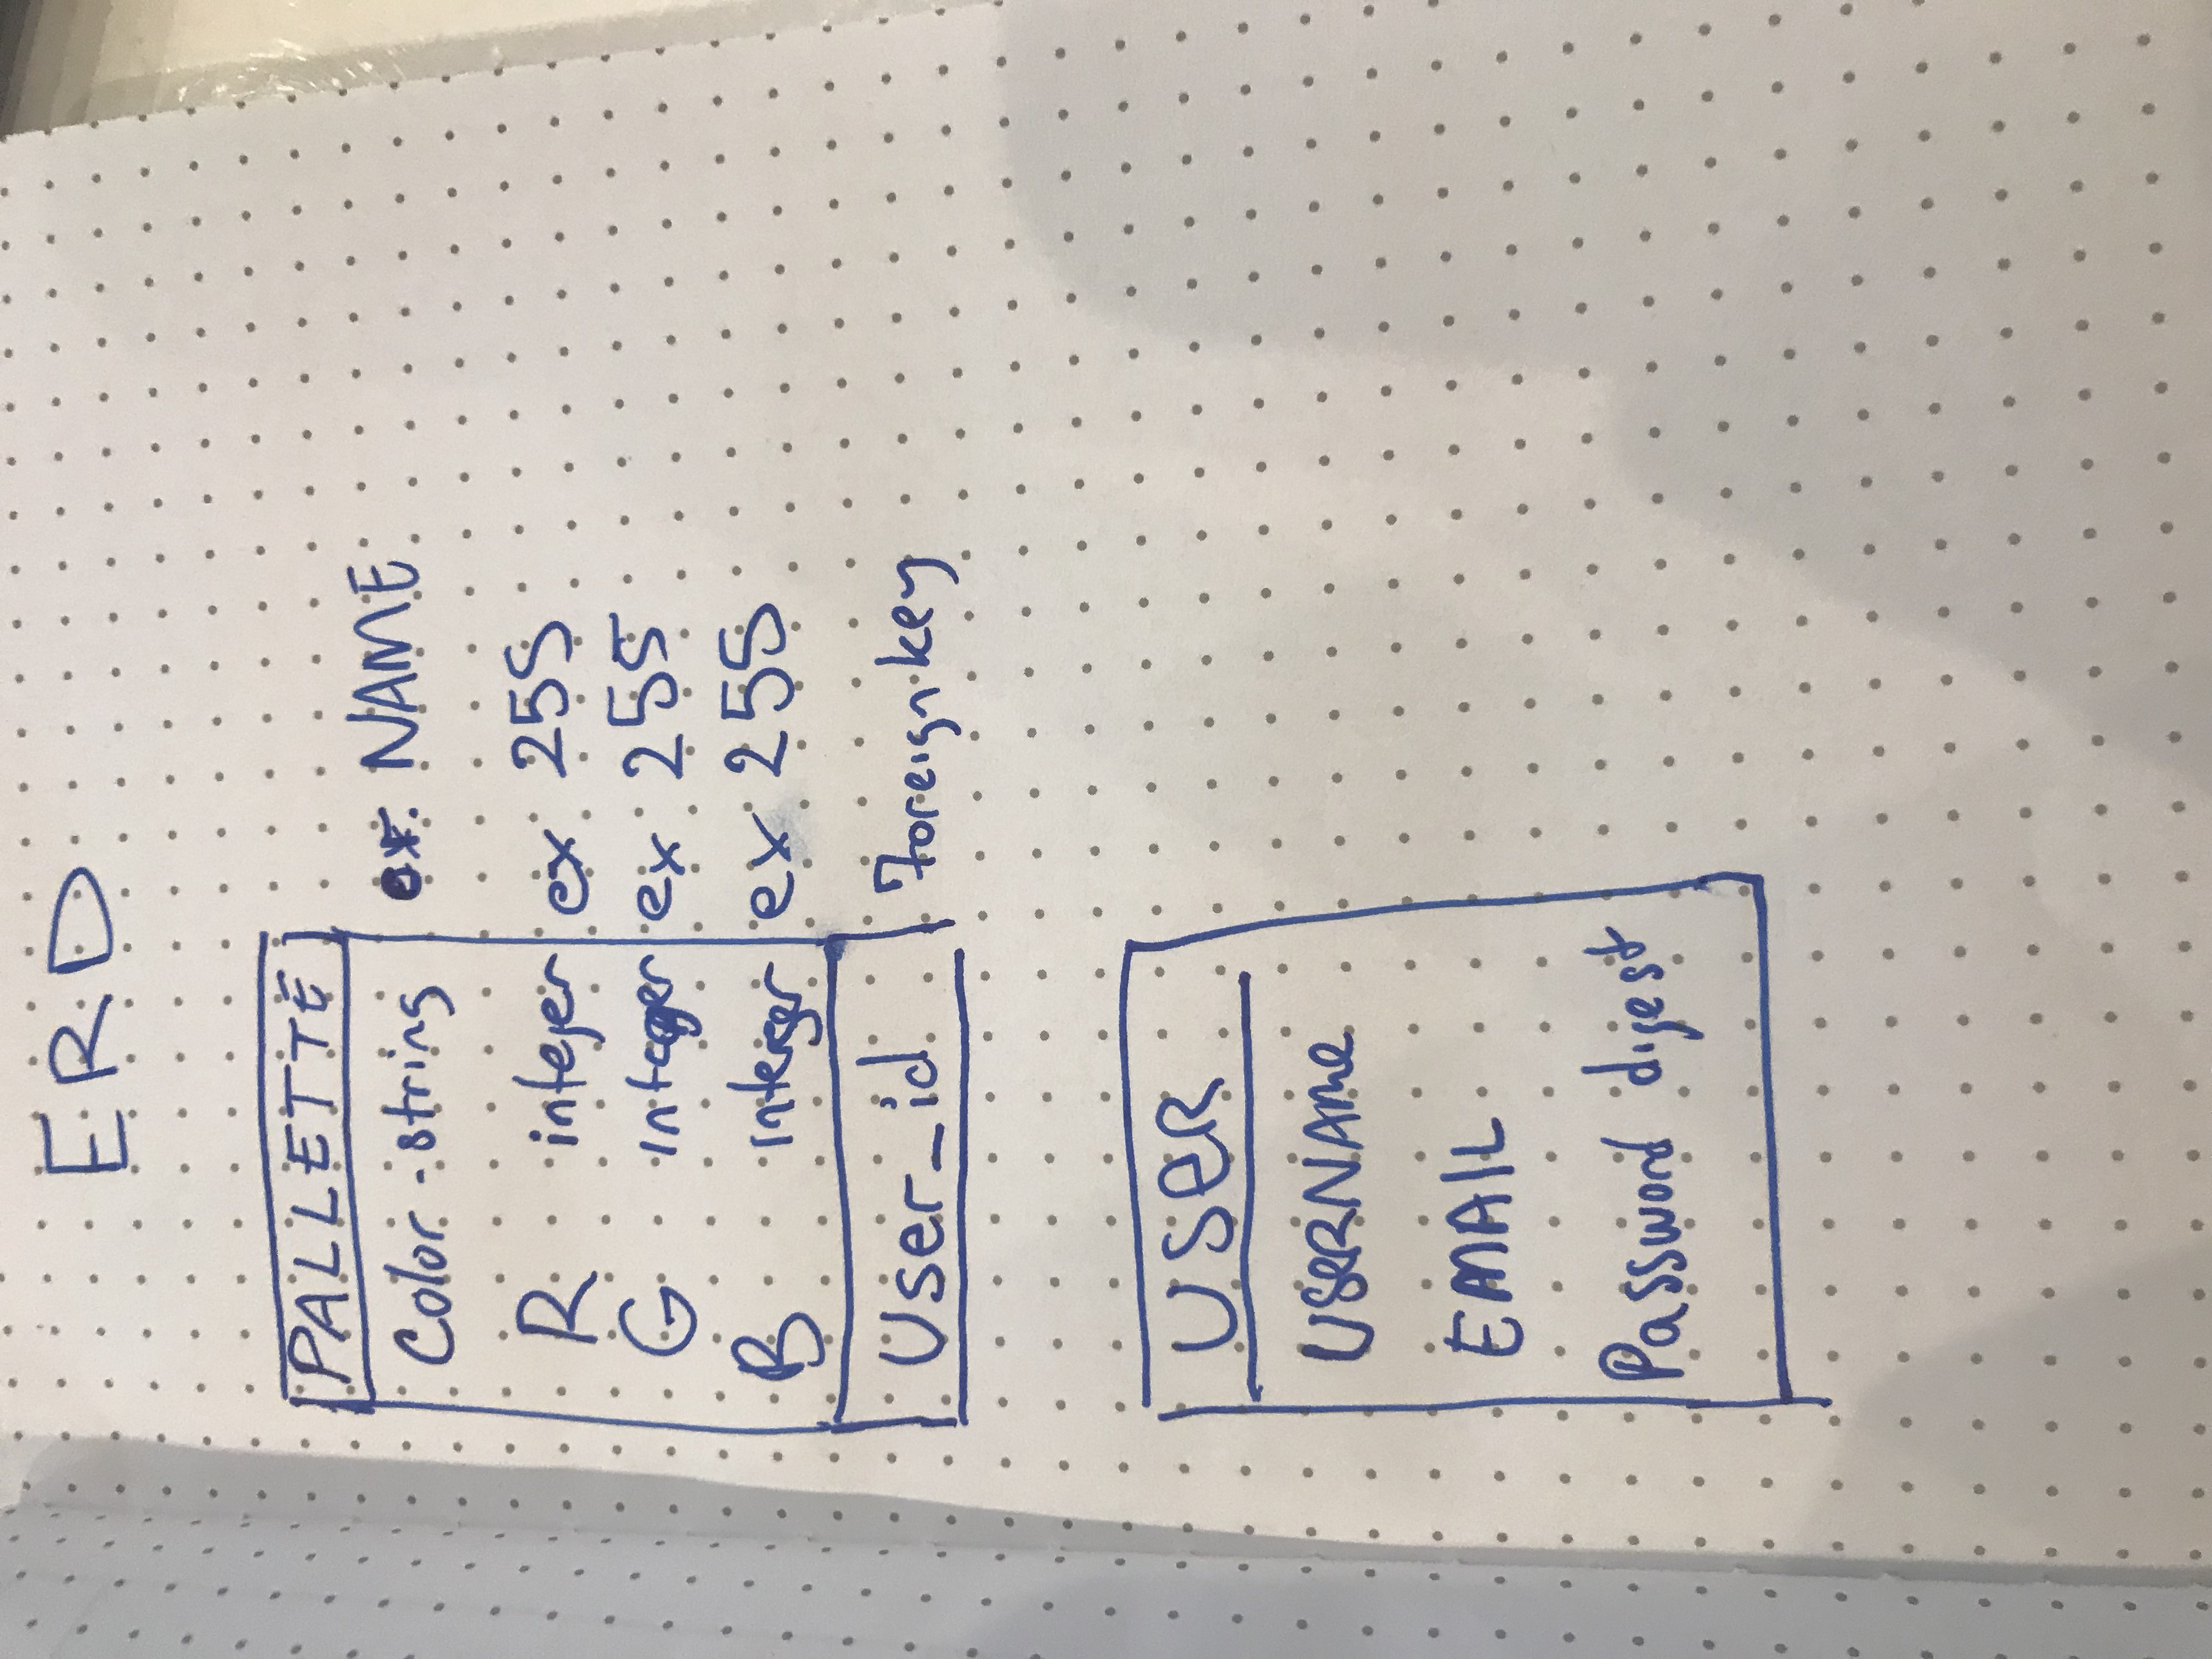 ERD
PALLETTE
Color - string ex. NAME
R integer ex 255
G integer ex 255
B integer ex 255
User_id Foreign key
USER
USERNAME
EMAIL
Password digest